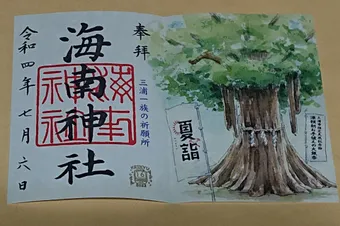 奉拝
三浦一族の祈願所
海南神社
令和四年七月六日
夏詣